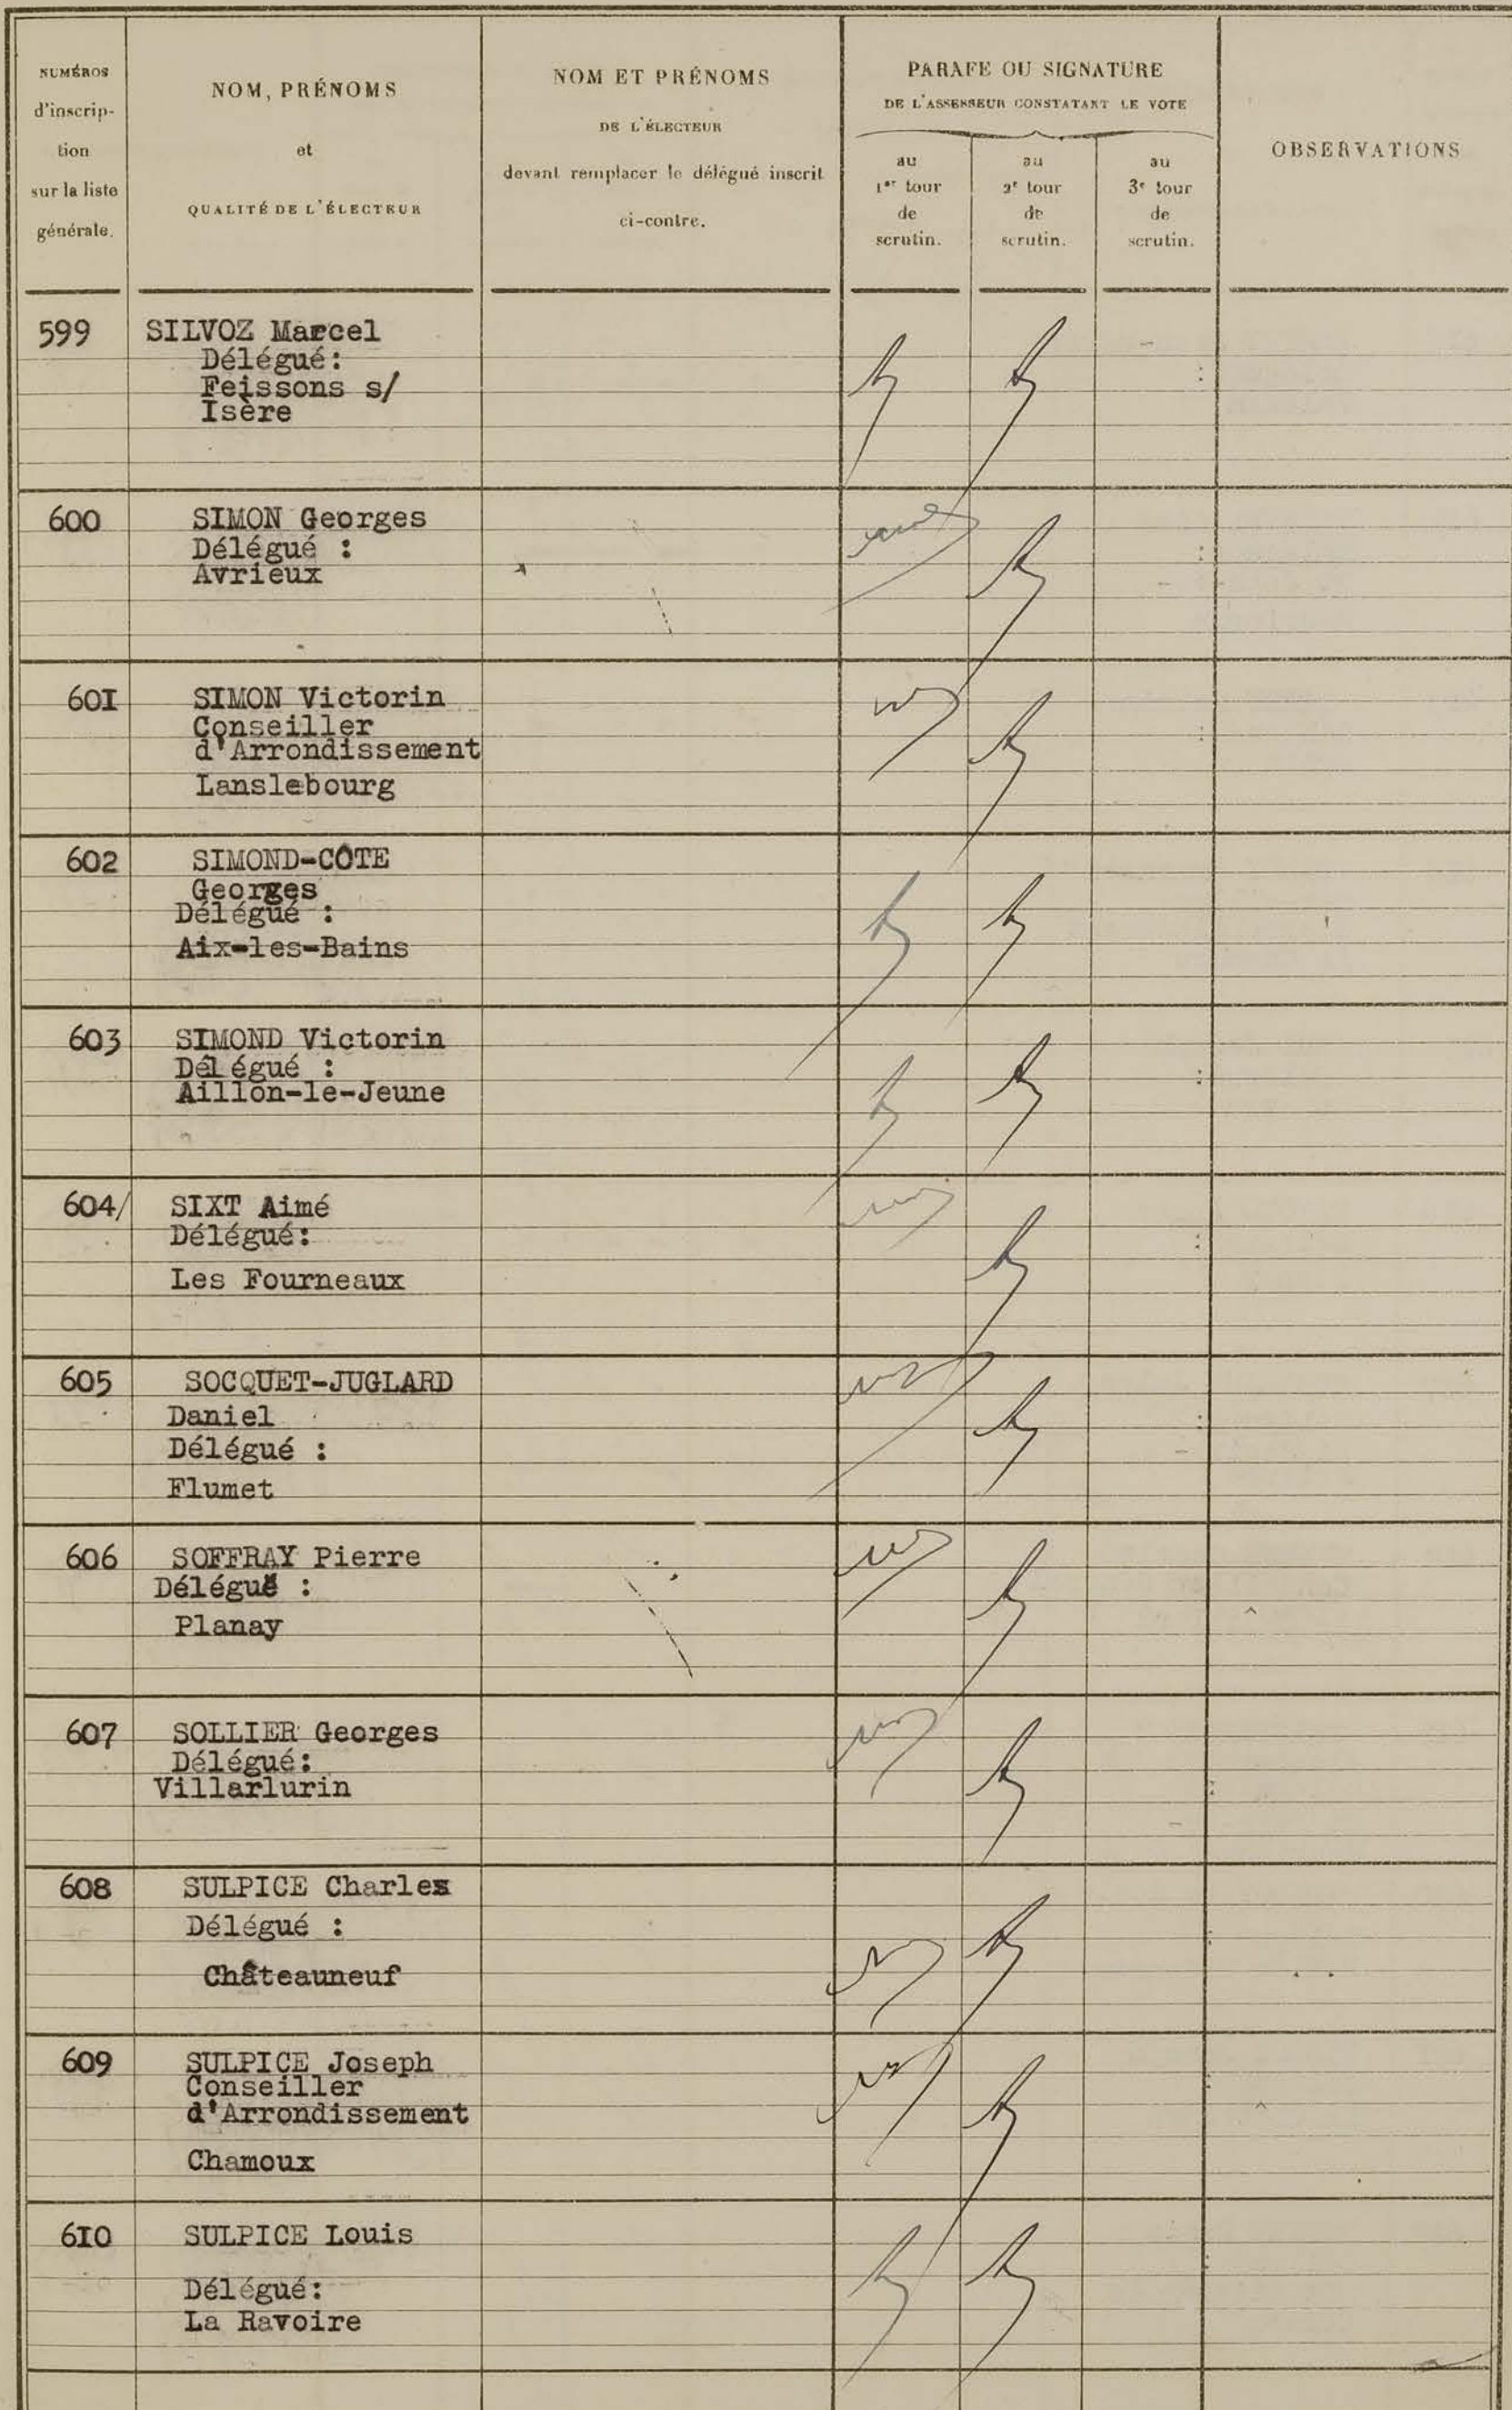 NUMÉROS
d'inscrip-
tion
sur la liste
générale.
NOM, PRÉNOMS
et
QUALITÉ DE L'ÉLECTEUR
NOM ET PRÉNOMS
DE L'ÉLECTEUR
devant remplacer le délégué inscrit
ci-contre.
PARAFE OU SIGNATURE
DE L'ASSESSEUR CONSTATANT LE VOTE
au
1er tour
de
scrutin.
au
2e tour
de
scrutin.
au
3e tour
de
scrutin.
OBSERVATIONS
599 SILVOZ Marcel
Délégué:
Feissons s/
Isère
600 SIMON Georges
Délégué :
Avrieux
60I SIMON Victorin
Conseiller
d'Arrondissement
Lanslebourg
602 SIMOND-CÔTE
Georges
Délégué :
Aix-les-Bains
603 SIMOND Victorin
Délégué :
Aillon-le-Jeune
604/ SIXT Aimé
Délégué:
Les Fourneaux
605 SOCQUET-JUGLARD
Daniel
Délégué :
Flumet
606 SOFFRAY Pierre
Délégué :
Planay
607 SOLLIER Georges
Délégué:
Villarlurin
608 SULPICE Charles
Délégué :
Châteauneuf
609 SULPICE Joseph
Conseiller
d'Arrondissement
Chamoux
6I0 SULPICE Louis
Délégué:
La Ravoire